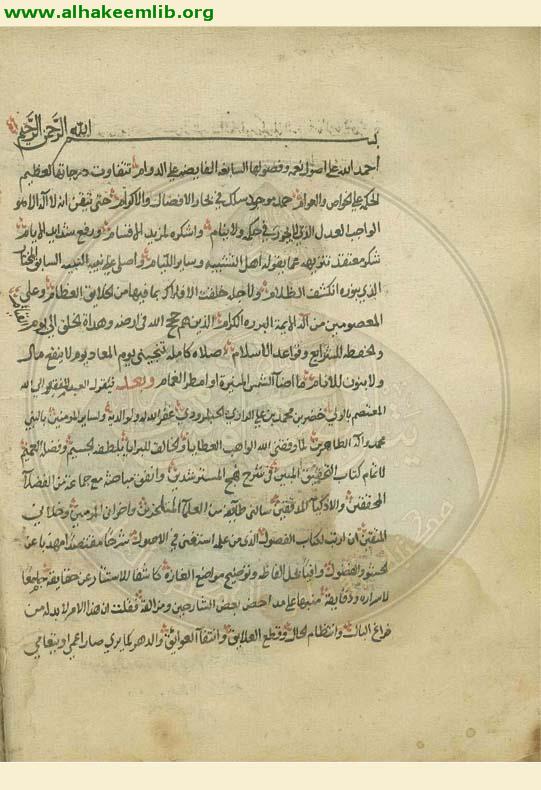 www.alhakeemlib.org
بسم الله الرحمن الرحيم
احمد الله على اصول نعمه وفصولها السابغة الفايضة على الدوام تتفاوت درجاتها لعظيم
الحكمة على الخواص والعوام حمد موحد سلك في بحار الافضال والاكرام حتى تيقن انه لا اله الا هو
الواجب العدل الذي لا يجور في حكمه ولا ينام واشكره لمزيد الاقسام ورفع شدايد الايام
شكر معتقد تنزيهه عما يقوله اهل التشبيه وساير اللئام واصلي على نبيه النبيه السابق المختار
الذي بنوره انكشف الظلام ولاجله خلقت الافلاك بما فيها من الخلايق العظام وعلى
المعصومين من آله الايمة البررة الكرام الذين هم حجج الله في ارضه وهداة الخلق الى يوم القيام
ولحفظه الشرايع وقواعد الاسلام صلاة كاملة تنجيني يوم المعاد يوم لا ينفع مال
ولا بنون للانام ما اضآت الشمس المنيرة او امطر الغمام وبعد فيقول العبد الفقير الى الله
المعتصم بالولي خضر بن محمد بن علي الرازي الحبلرودي غفر الله له ولوالديه ولساير المومنين بالنبي
محمد وآله الطاهرين لما وفقني الله الواهب العطايا والخالق للبرايا بلطفه الجسيم وفضله العميم
لاتمام كتاب التحقيق المبين في شرح نهج المسترشدين واتفق مباحثته مع جماعة من الفضلآ
المحققين والاذكيآ المدققين سالني طايفة من العلمآ المتبحرين واخوان المومنين وخلاني
المتقين ان ارتب لكتاب الفصول الذي من علمه استغنى في الاصول شرحا مقتصدا مهذبا عن
الحشو والفضول وافيا بحل الفاظه وتوضيح مواضع الغازه كاشفا للاستار عن حقايقه جامعا
لاسراره ودقايقه منبها على مداحض بعض الشارحين ومزالقه فقلت ان هذا الامر لا بد له من
فراغ البال وانتظام الحال وقطع العلايق وانتفآ العوايق والدهر كما يرى صار اعمى او يتعامى